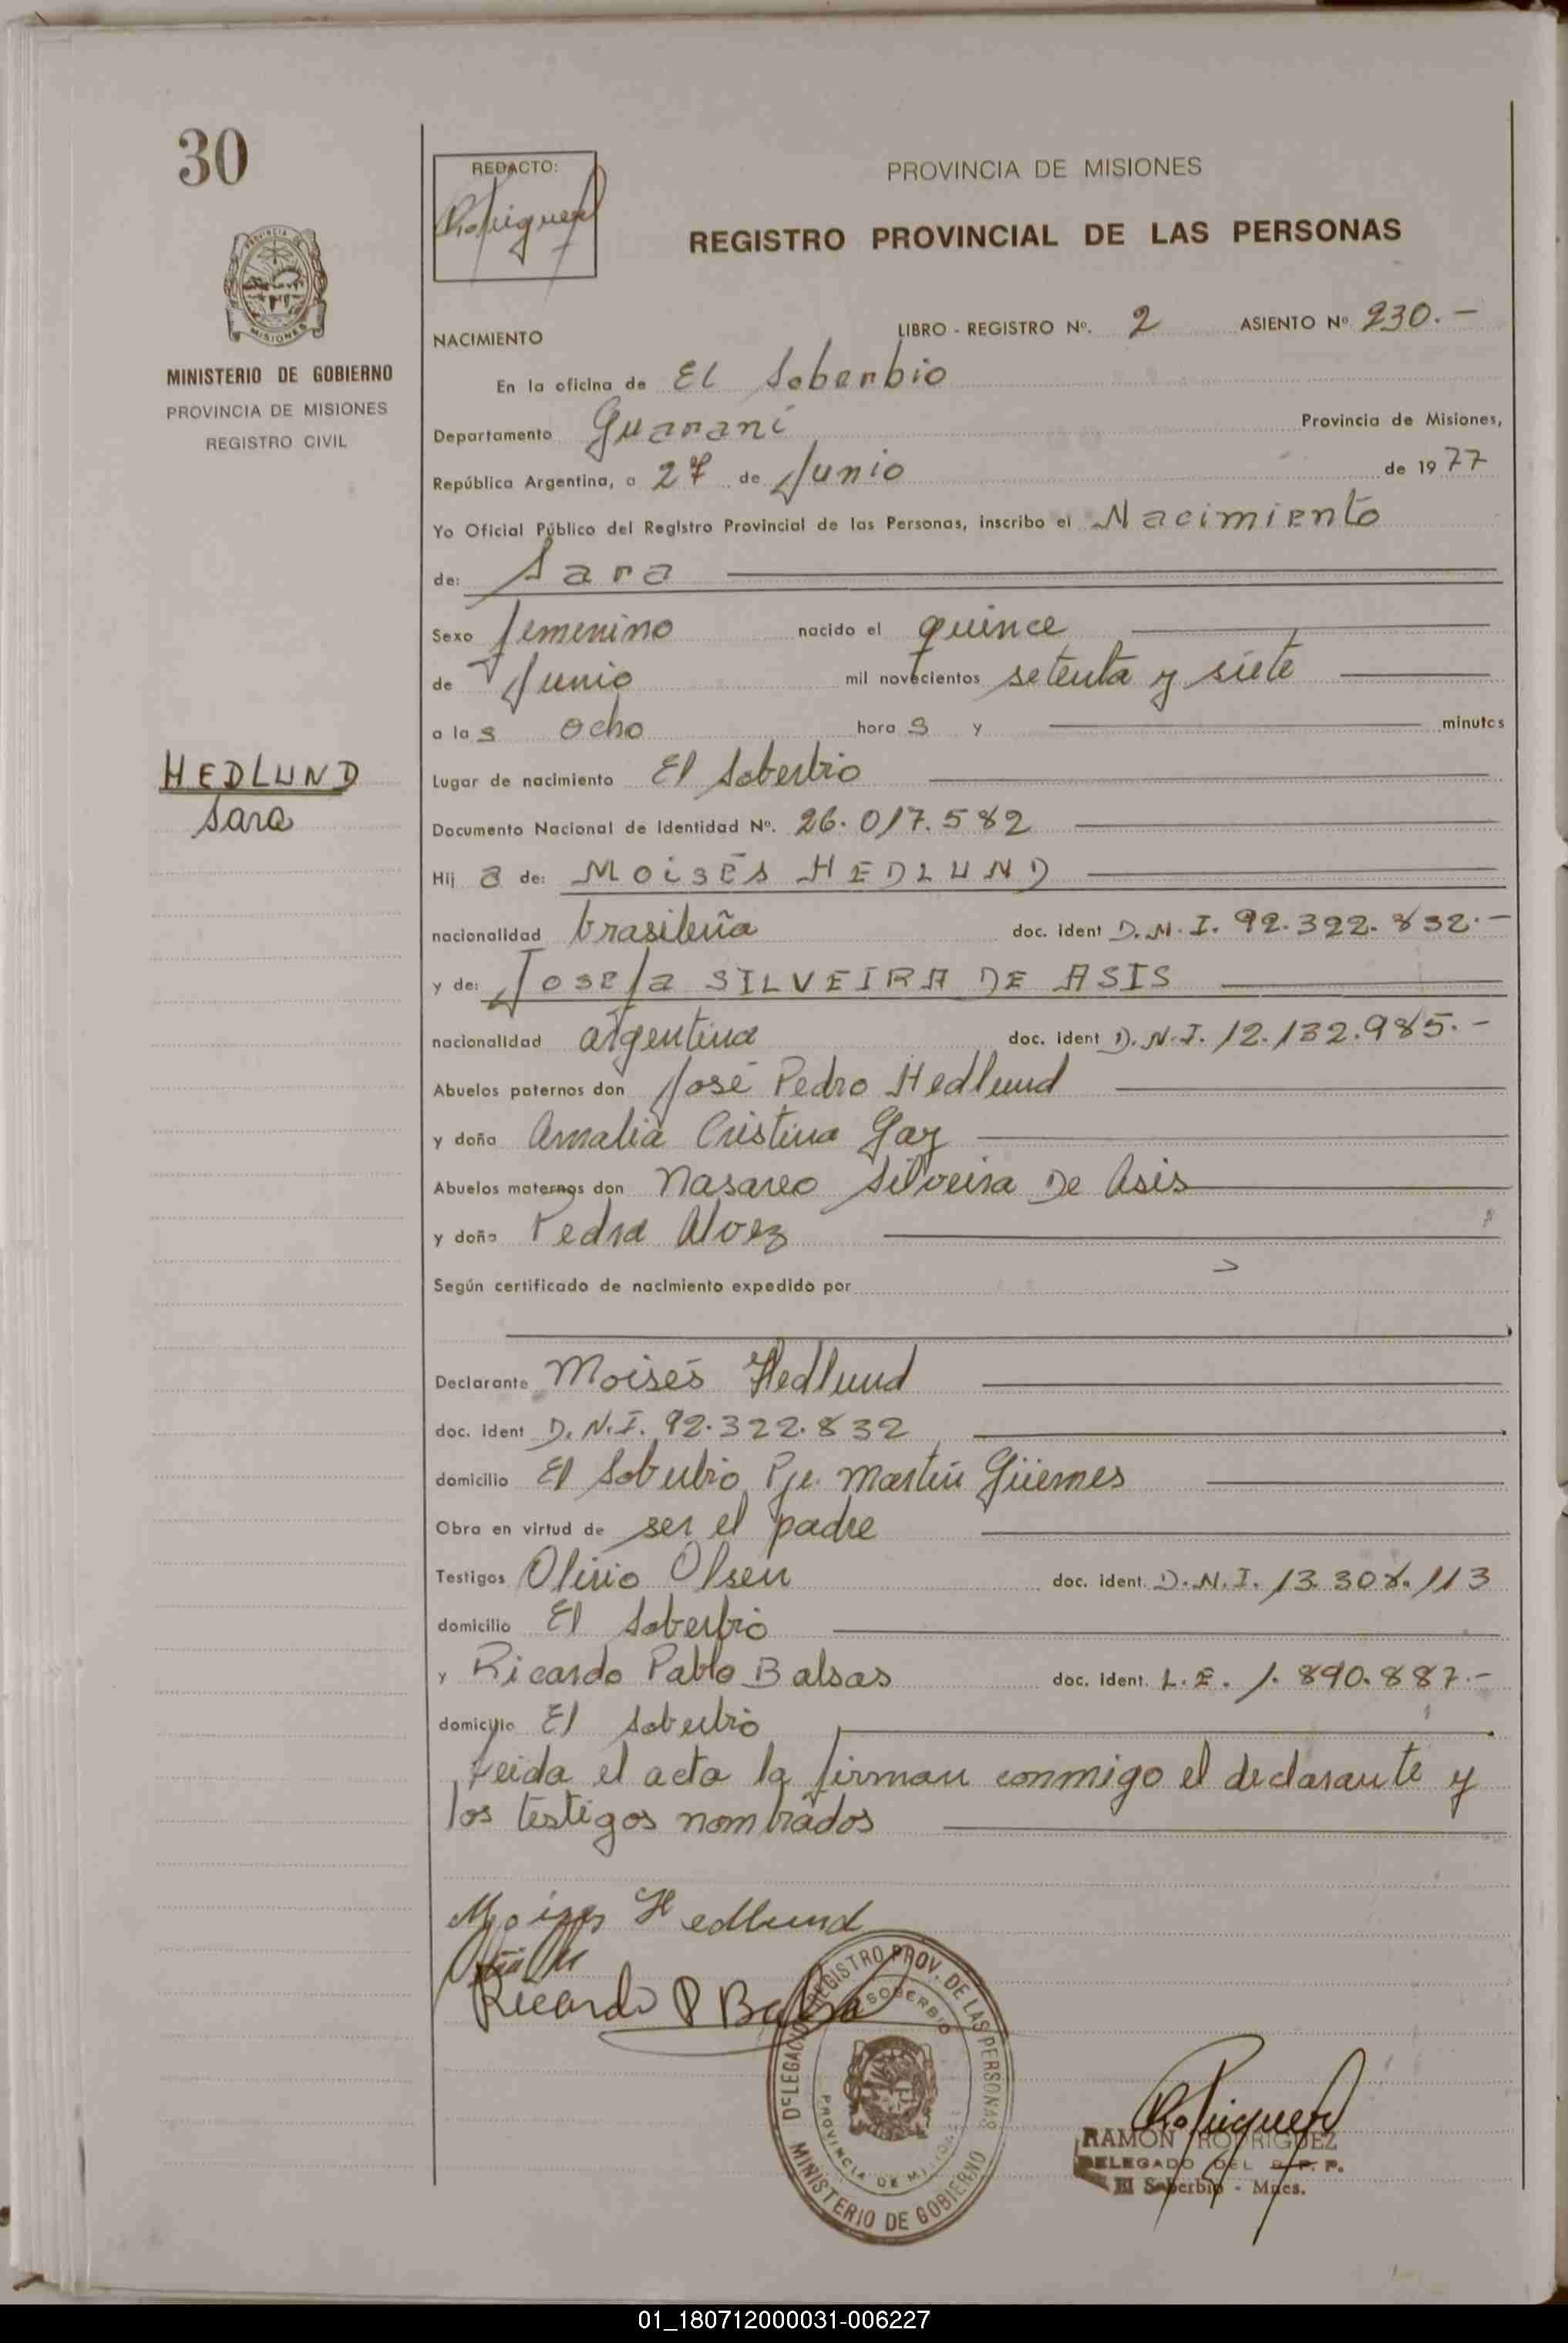 30
PROVINCIA DE
MISIONES
MINISTERIO DE GOBIERNO
PROVINCIA DE MISIONES
REGISTRO CIVIL
HEDLUND
Sara
REDACTO:
PROVINCIA DE MISIONES
REGISTRO PROVINCIAL DE LAS PERSONAS
NACIMIENTO LIBRO - REGISTRO Nº. 2 ASIENTO Nº 230.-
En la oficina de El Soberbio
Departamento Guaraní Provincia de Misiones,
República Argentina, a 27 de Junio de 1977
Yo Oficial Público del Registro Provincial de las Personas, inscribo el Nacimiento
de: Sara
Sexo femenino nacido el quince
de Junio mil novecientos setenta y siete
a las ocho horas y minutos
Lugar de nacimiento El Soberbio
Documento Nacional de Identidad Nº. 26.017.582
Hija de: Moisés HEDLUND
nacionalidad brasileña doc. ident D.N.I. 92.322.832.-
y de: Josefa SILVEIRA DE ASIS
nacionalidad argentina doc. ident D.N.I. 12.132.985.-
Abuelos paternos don José Pedro Hedlund
y doña Amalia Cristina Gay
Abuelos maternos don Nasareo Silveira De Asis
y doña Pedra Alvez
Según certificado de nacimiento expedido por
Declarante Moisés Hedlund
doc. ident D.N.I. 92.322.832
domicilio El Soberbio Pje. Martín Güemes
Obra en virtud de ser el padre
Testigos Olirio Olsen doc. ident. D.N.I. 13.308.113
domicilio El Soberbio
y Ricardo Pablo Balsas doc. ident. L.E. 1.890.887.-
domicilio El Soberbio
Leida el acta la firman conmigo el declarante y
los testigos nombrados
Moises Hedlund
Ricardo P Balsa
DELEGACION REGISTRO PROV. DE LAS PERSONAS
SOBERBIO
PROVINCIA DE MISIONES
MINISTERIO DE GOBIERNO
RAMON RODRIGUEZ
DELEGADO DEL R. P. P.
El Soberbio - Mnes.
01_180712000031-006227